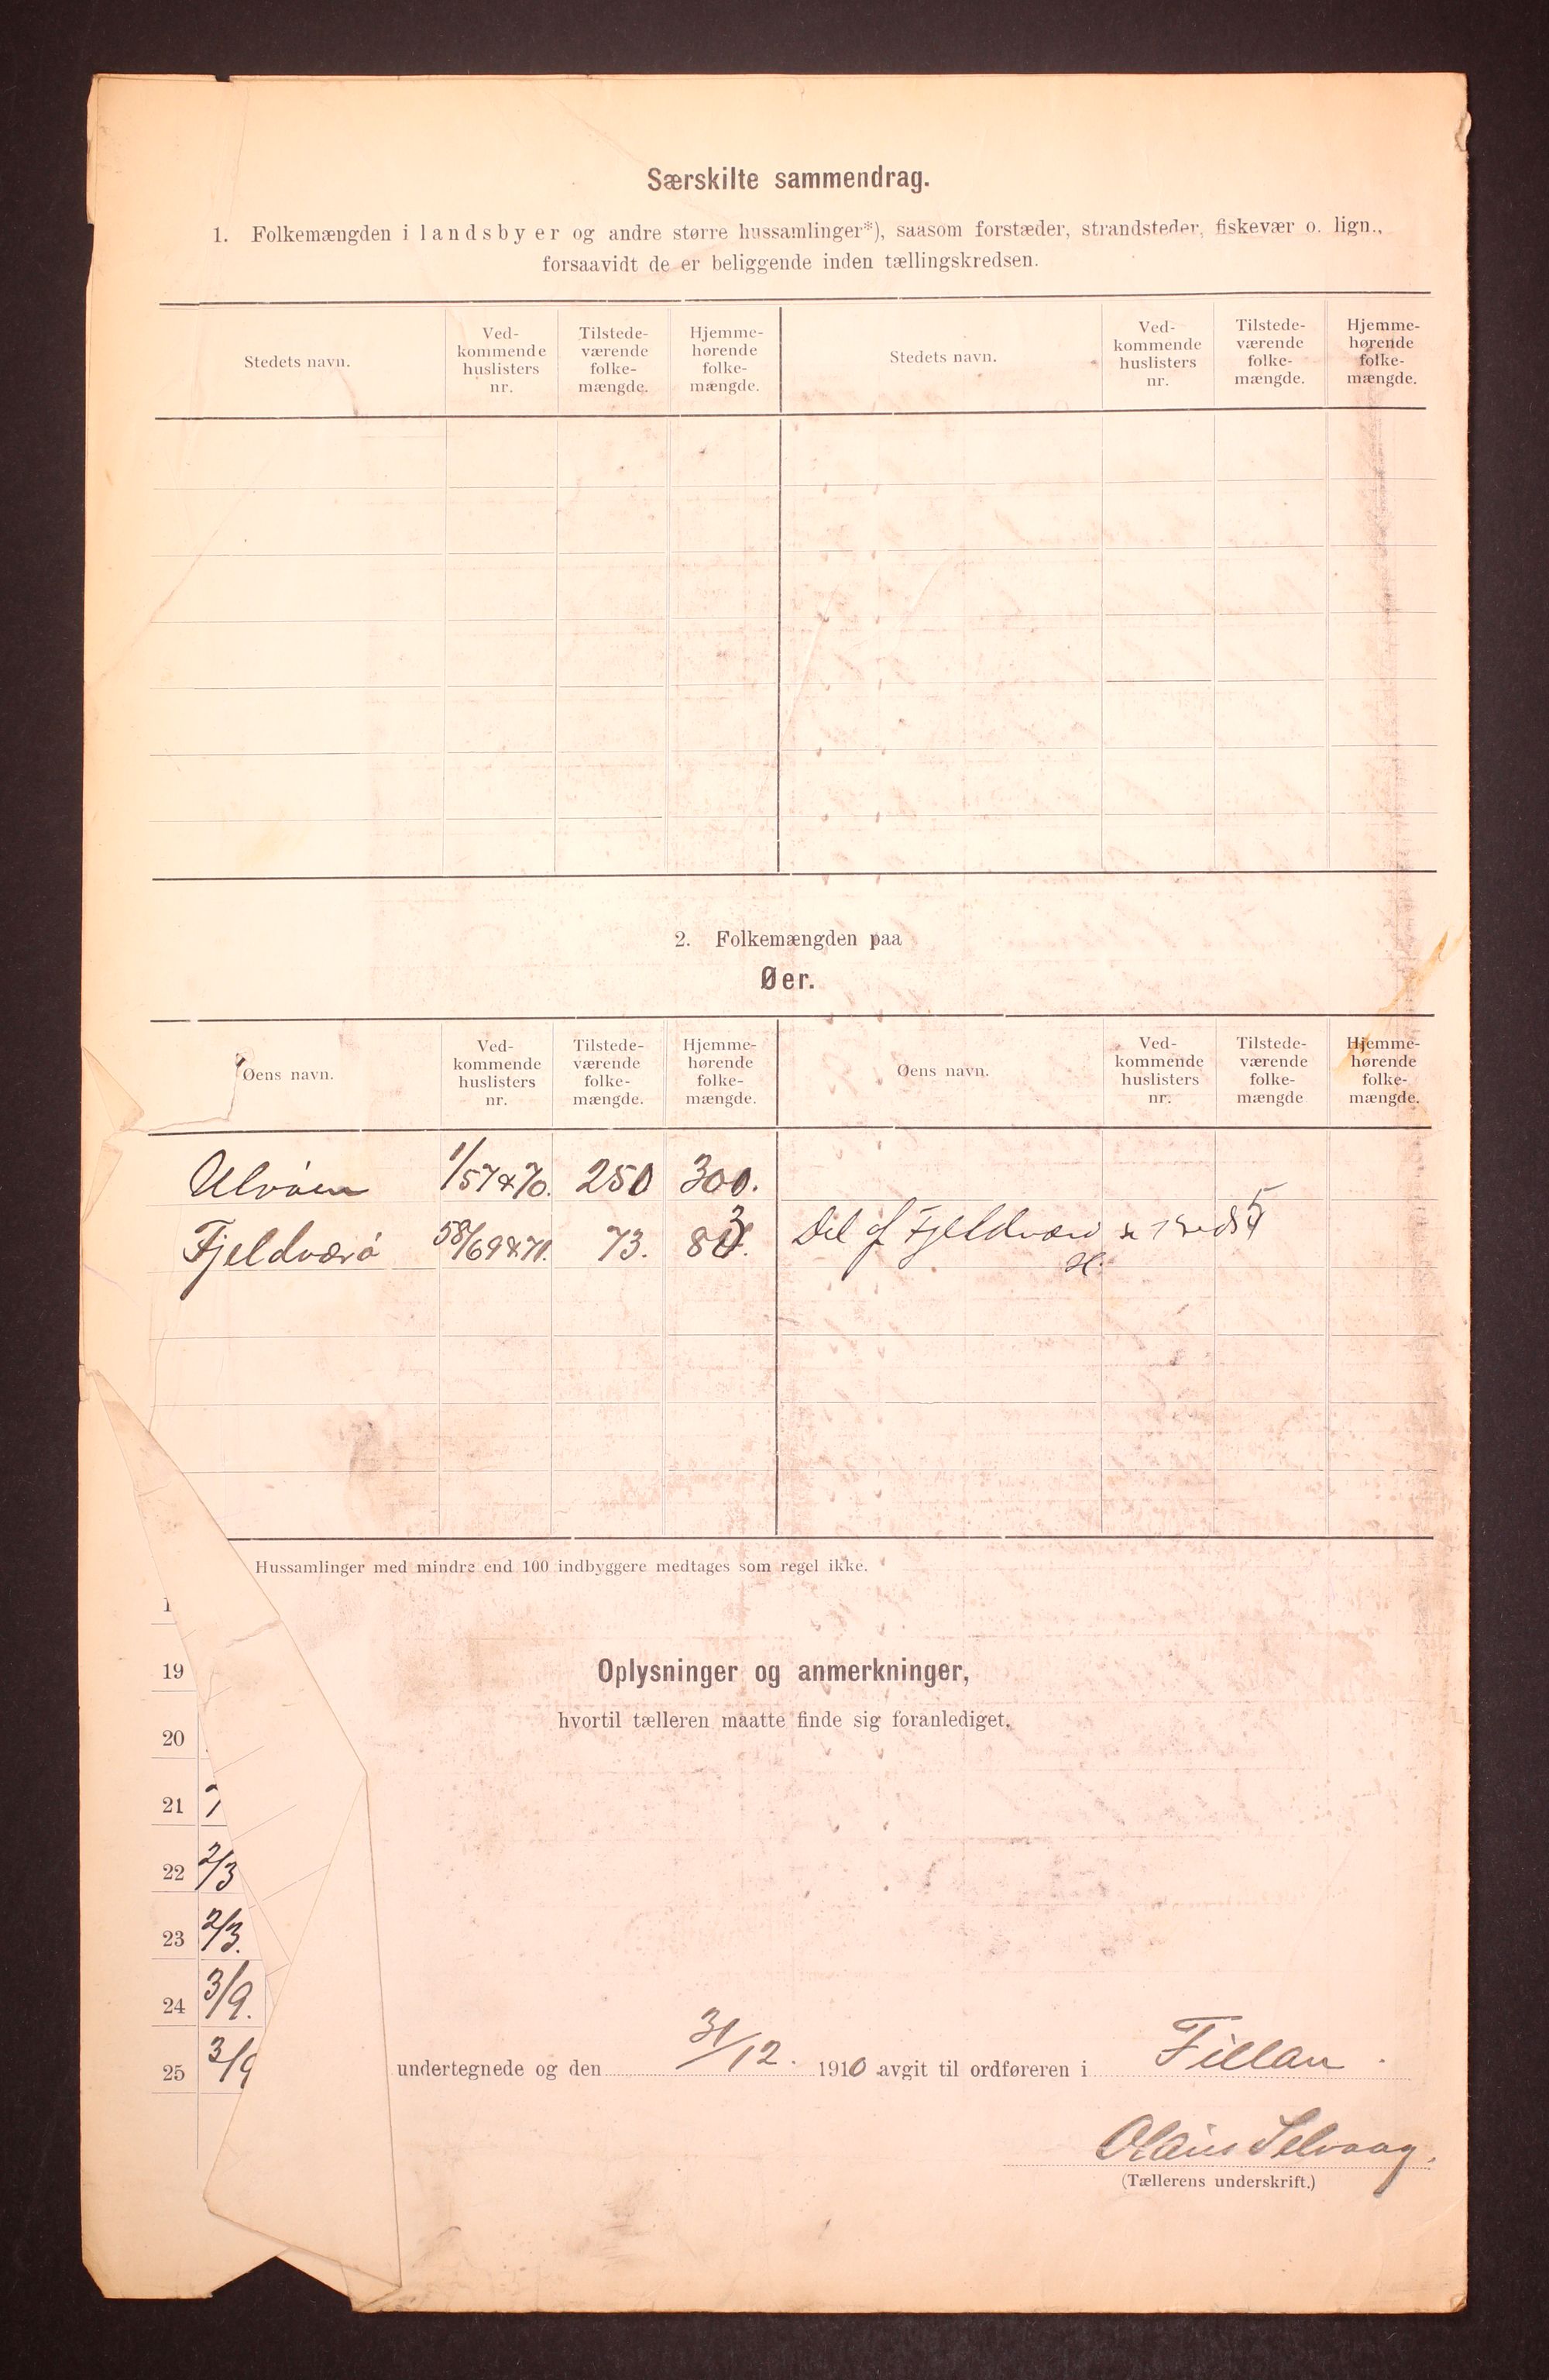 Særskilte sammendrag.
1. Folkemængden i landsbyer og andre større hussamlinger*), saasom forstæder, strandsteder, fiskevær o. lign.,
forsaavidt de er beliggende inden tællingskredsen.
Stedets navn. Ved-kommende huslisters nr. Tilstede-værende folke-mængde. Hjemme-hørende folke-mængde. Stedets navn. Ved-kommende huslisters nr. Tilstede-værende folke-mængde. Hjemme-hørende folke-mængde.
2. Folkemængden paa
Øer.
Øens navn. Ved-kommende huslisters nr. Tilstede-værende folke-mængde. Hjemme-hørende folke-mængde. Øens navn. Ved-kommende huslisters nr. Tilstede-værende folke-mængde Hjemme-hørende folke-mængde.
Ulvøen 1/57 & 70. 250 300.
Fjeldværø 58/69 & 71. 73. 83. Del af Fjeldværø
Hussamlinger med mindre end 100 indbyggere medtages som regel ikke.
19
Oplysninger og anmerkninger,
hvortil tælleren maatte finde sig foranlediget.
20
21
22 2/3
23 2/3.
24 3/9.
25 3/9
undertegnede og den 31/12. 1910 avgit til ordføreren i Fillan.
Olaus Selvaag.
(Tællerens underskrift.)